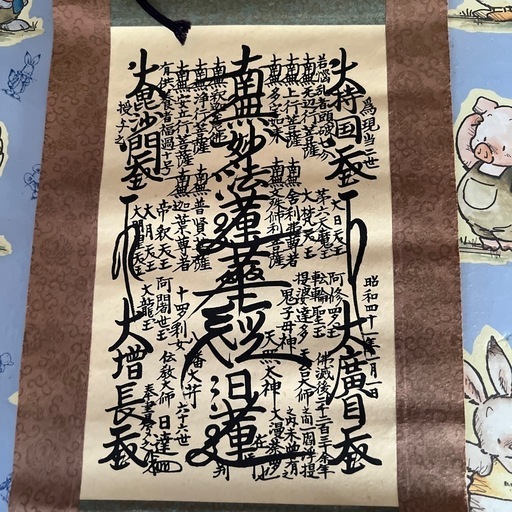 為現当二世
大持国天王
若悩乱者頭破七分
南無無辺行菩薩
南無上行菩薩
南無多宝如来
南無妙法蓮華経
日蓮
在御判
南無浄行菩薩
南無安立行菩薩
有供養者福過十号
大毘沙門天王
授与之
大日天王
第六天魔王
大梵天王
南無舎利弗尊者
南無文殊師利菩薩
南無普賢菩薩
南無迦葉尊者
帝釈天王
大月天王
大明星天王
阿修羅王
転輪聖王
提婆達多
鬼子母神
十羅刹女
阿闍世王
大龍王
大廣目天王
佛滅後二千二百三十余年
之間一閻浮提
之内未曾有之
大漫荼羅也
天台大師
天照大神
八幡大菩薩
伝教大師
六十六世
日達
奉書写之
大増長天王